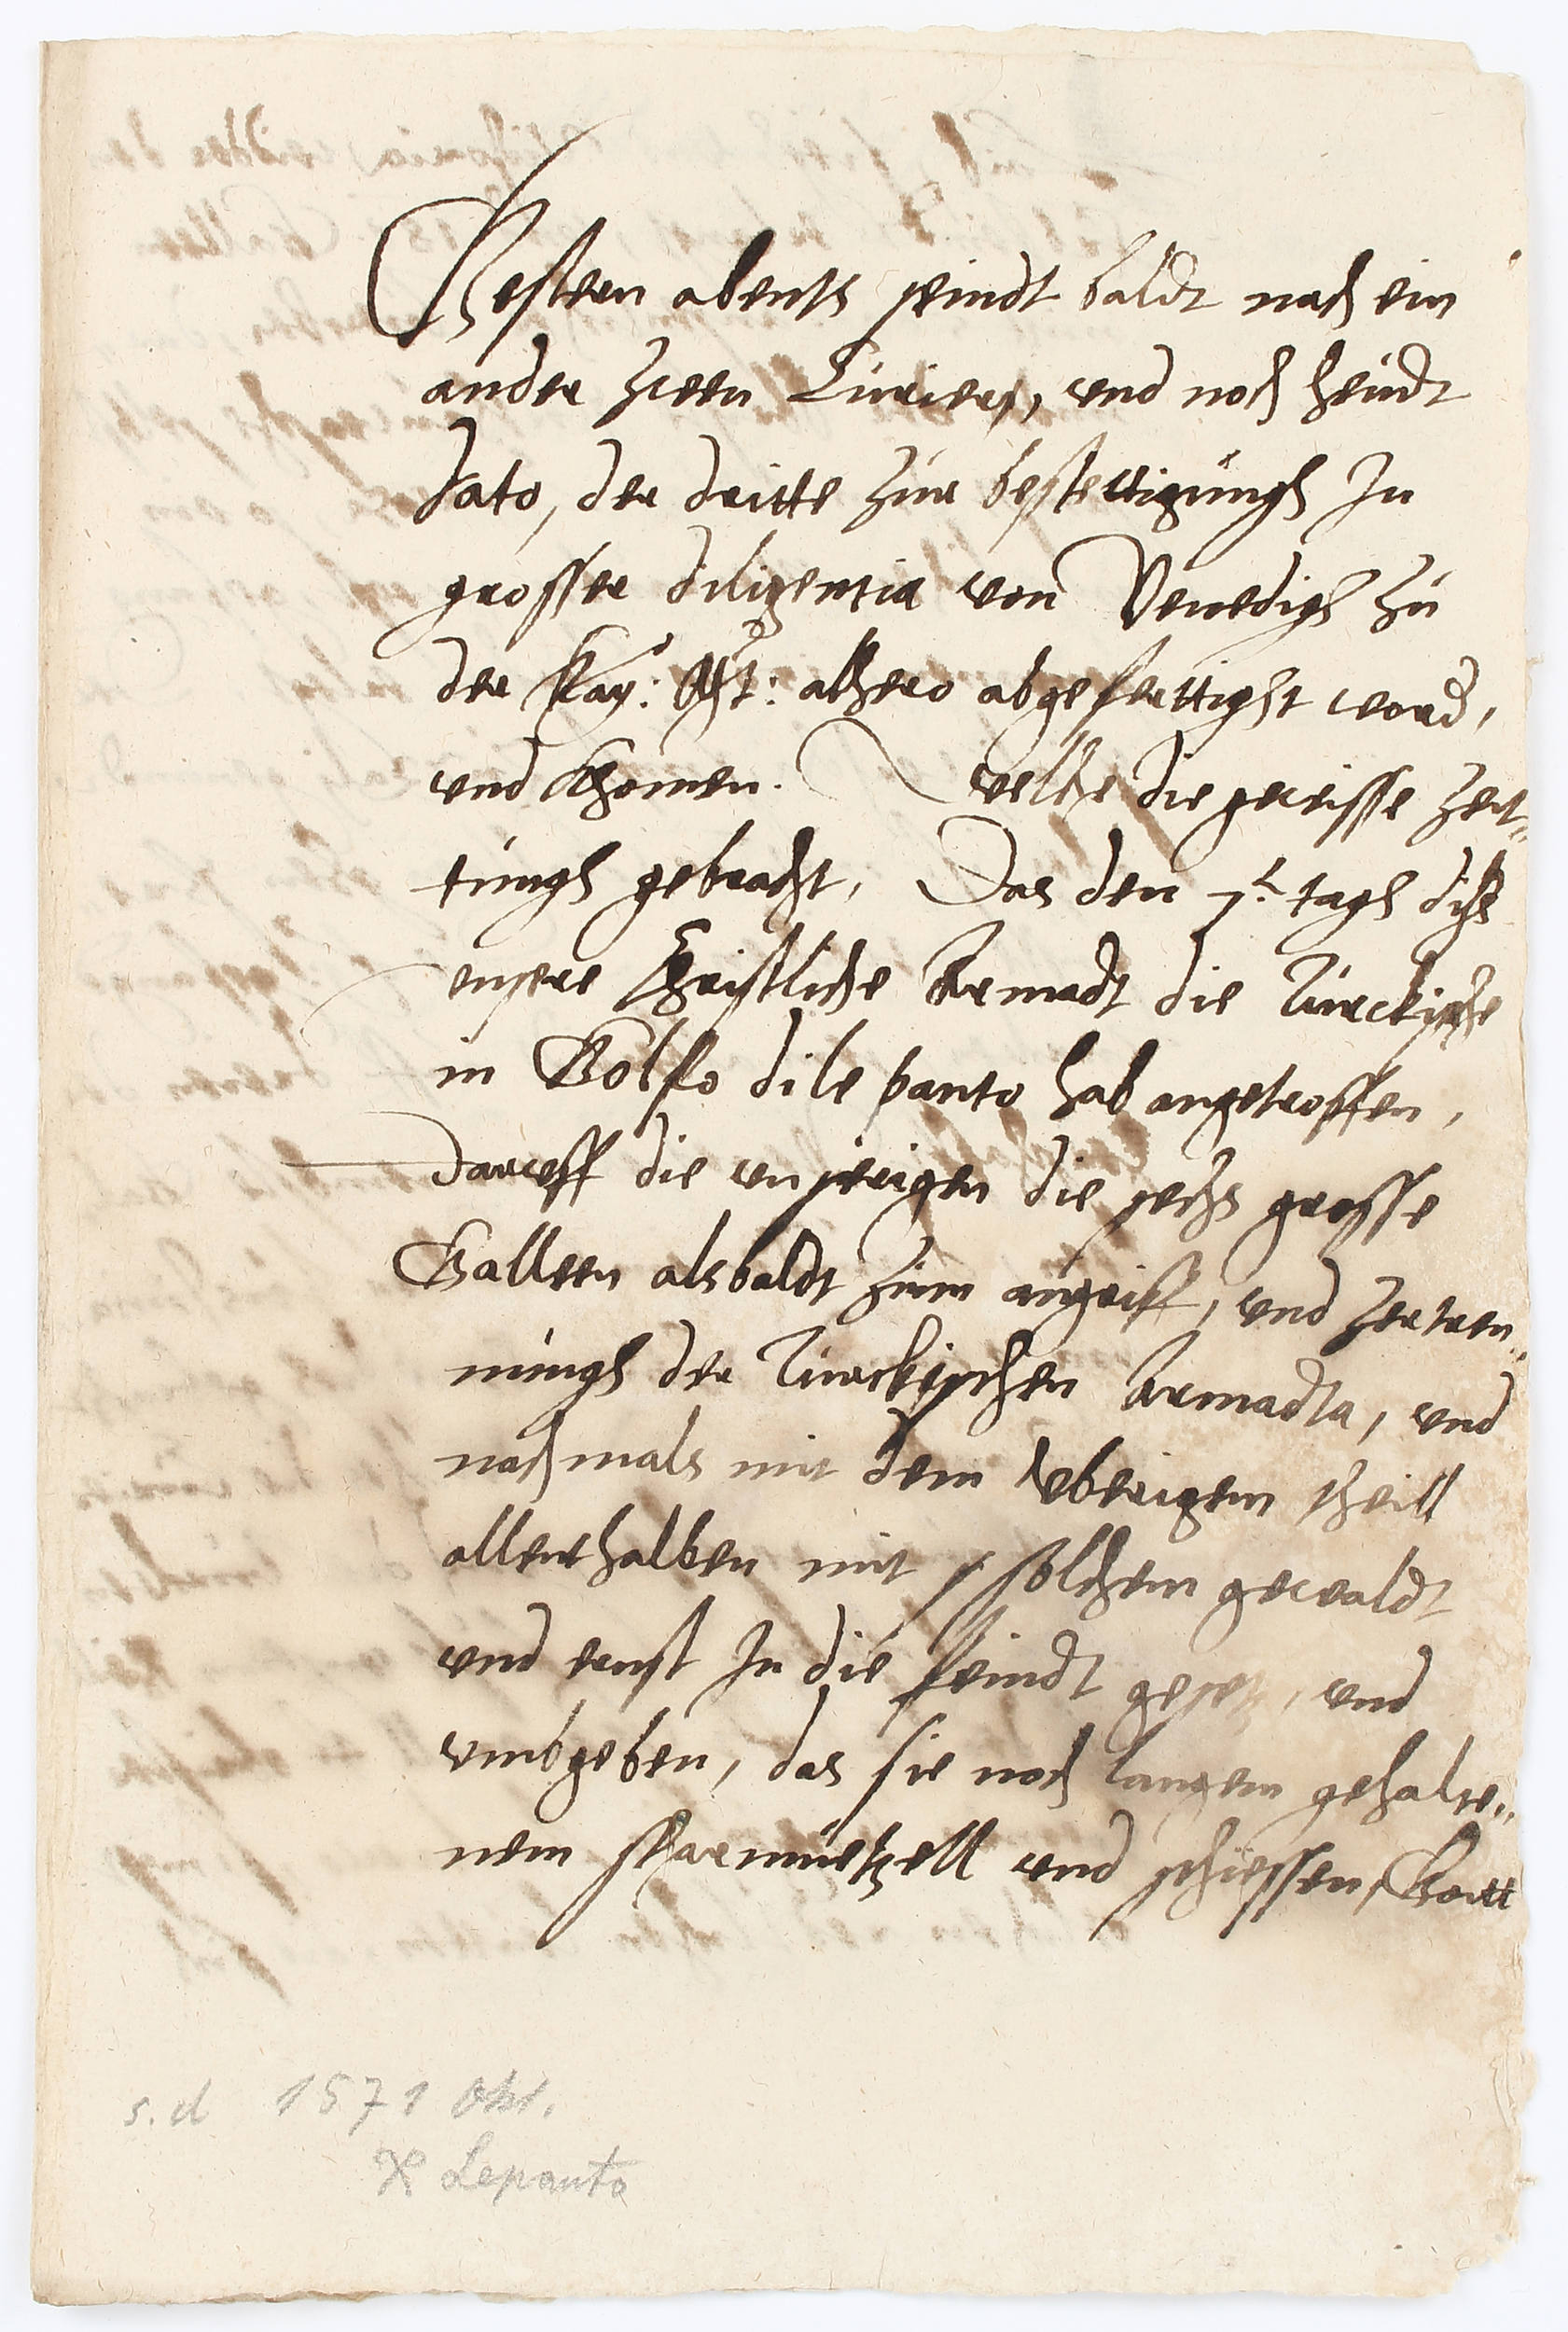 Gestern abents seindt baldt nach ein
ander zween Curiers, und noch heudt
dato, der dritte zur bestettigungh In
grosser diligentia von Venedigh zu
der Kay: Mt: alhero abgeferttight word,
und khomen. welche die gewisse Zeit„
tungh gebracht, Das den 7t. tagh diß
unsere Christliche Armadt die Turckische
in Golfo di le panto hab angetroffen,
Daruff die unserigen die sechs grosse
Galleen alsbaldt zum angriff, und zertren„
nungh der Turckischen Armadta, und
nachmals mit dem uberigem theill
allenthalben mit solchem gewaldt
und ernst In die feindt gesetz, und
umbgeben, das sie noch langem gehalte„
nem scharmuetzell und schiessen, Gott
s. d 1571 Okt.
Lepanto